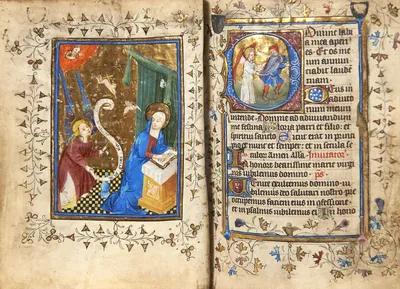 Domine labi
a mea aperi
es. Et os me
um annun
ciabit laude
mam
Deus in
adiutori
um meum
intende. Domine ad adiuuandum
me festina Gloria patri et filio: et
spiritui sancto Sicut erat in princi
pio et nunc et semper: et in secula se
culorum Amen Alla. Inuitatoriu
In honore beatissime marie virgi
nis iubilemus domino ps
Uenite exultemus domino iu
bilemus deo salutari nostro pre
occupemus faciem eius in
et in psalmis iubilemus ei In hono